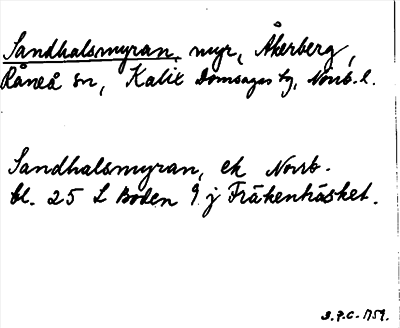 Sandhalsmyran, myr, Åkerberg,
Råneå sn, Kalix Domsagas tg, Norrb. l.
Sandhalsmyran, ek Norrb.
bl. 25 L Boden 9 j Fräkenträsket.